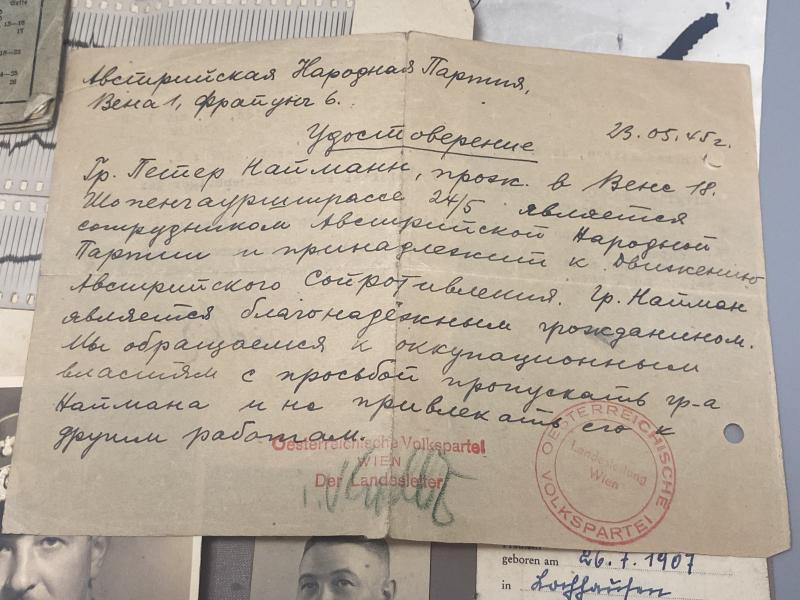 Австрийская Народная Партия,
Вена 1, Фрайунг 6.
23.05.45г.
Удостоверение
Гр. Петер Найманн, прож. в Вене 18.
Шопенгауэрштрассе 24/5 является
сотрудником Австрийской Народной
Партии и принадлежит к Движению
Австрийского Сопротивления. Гр. Найман
является благонадёжным гражданином.
Мы обращаемся к оккупационным
властям с просьбой пропускать гр-а
Наймана и не привлекать его к
другим работам.
Oesterreichische Volkspartei
WIEN
Der Landesleiter
OESTERREICHISCHE
VOLKSPARTEI
Landesleitung
Wien
geboren am 26.7.1907
in Lochhausen